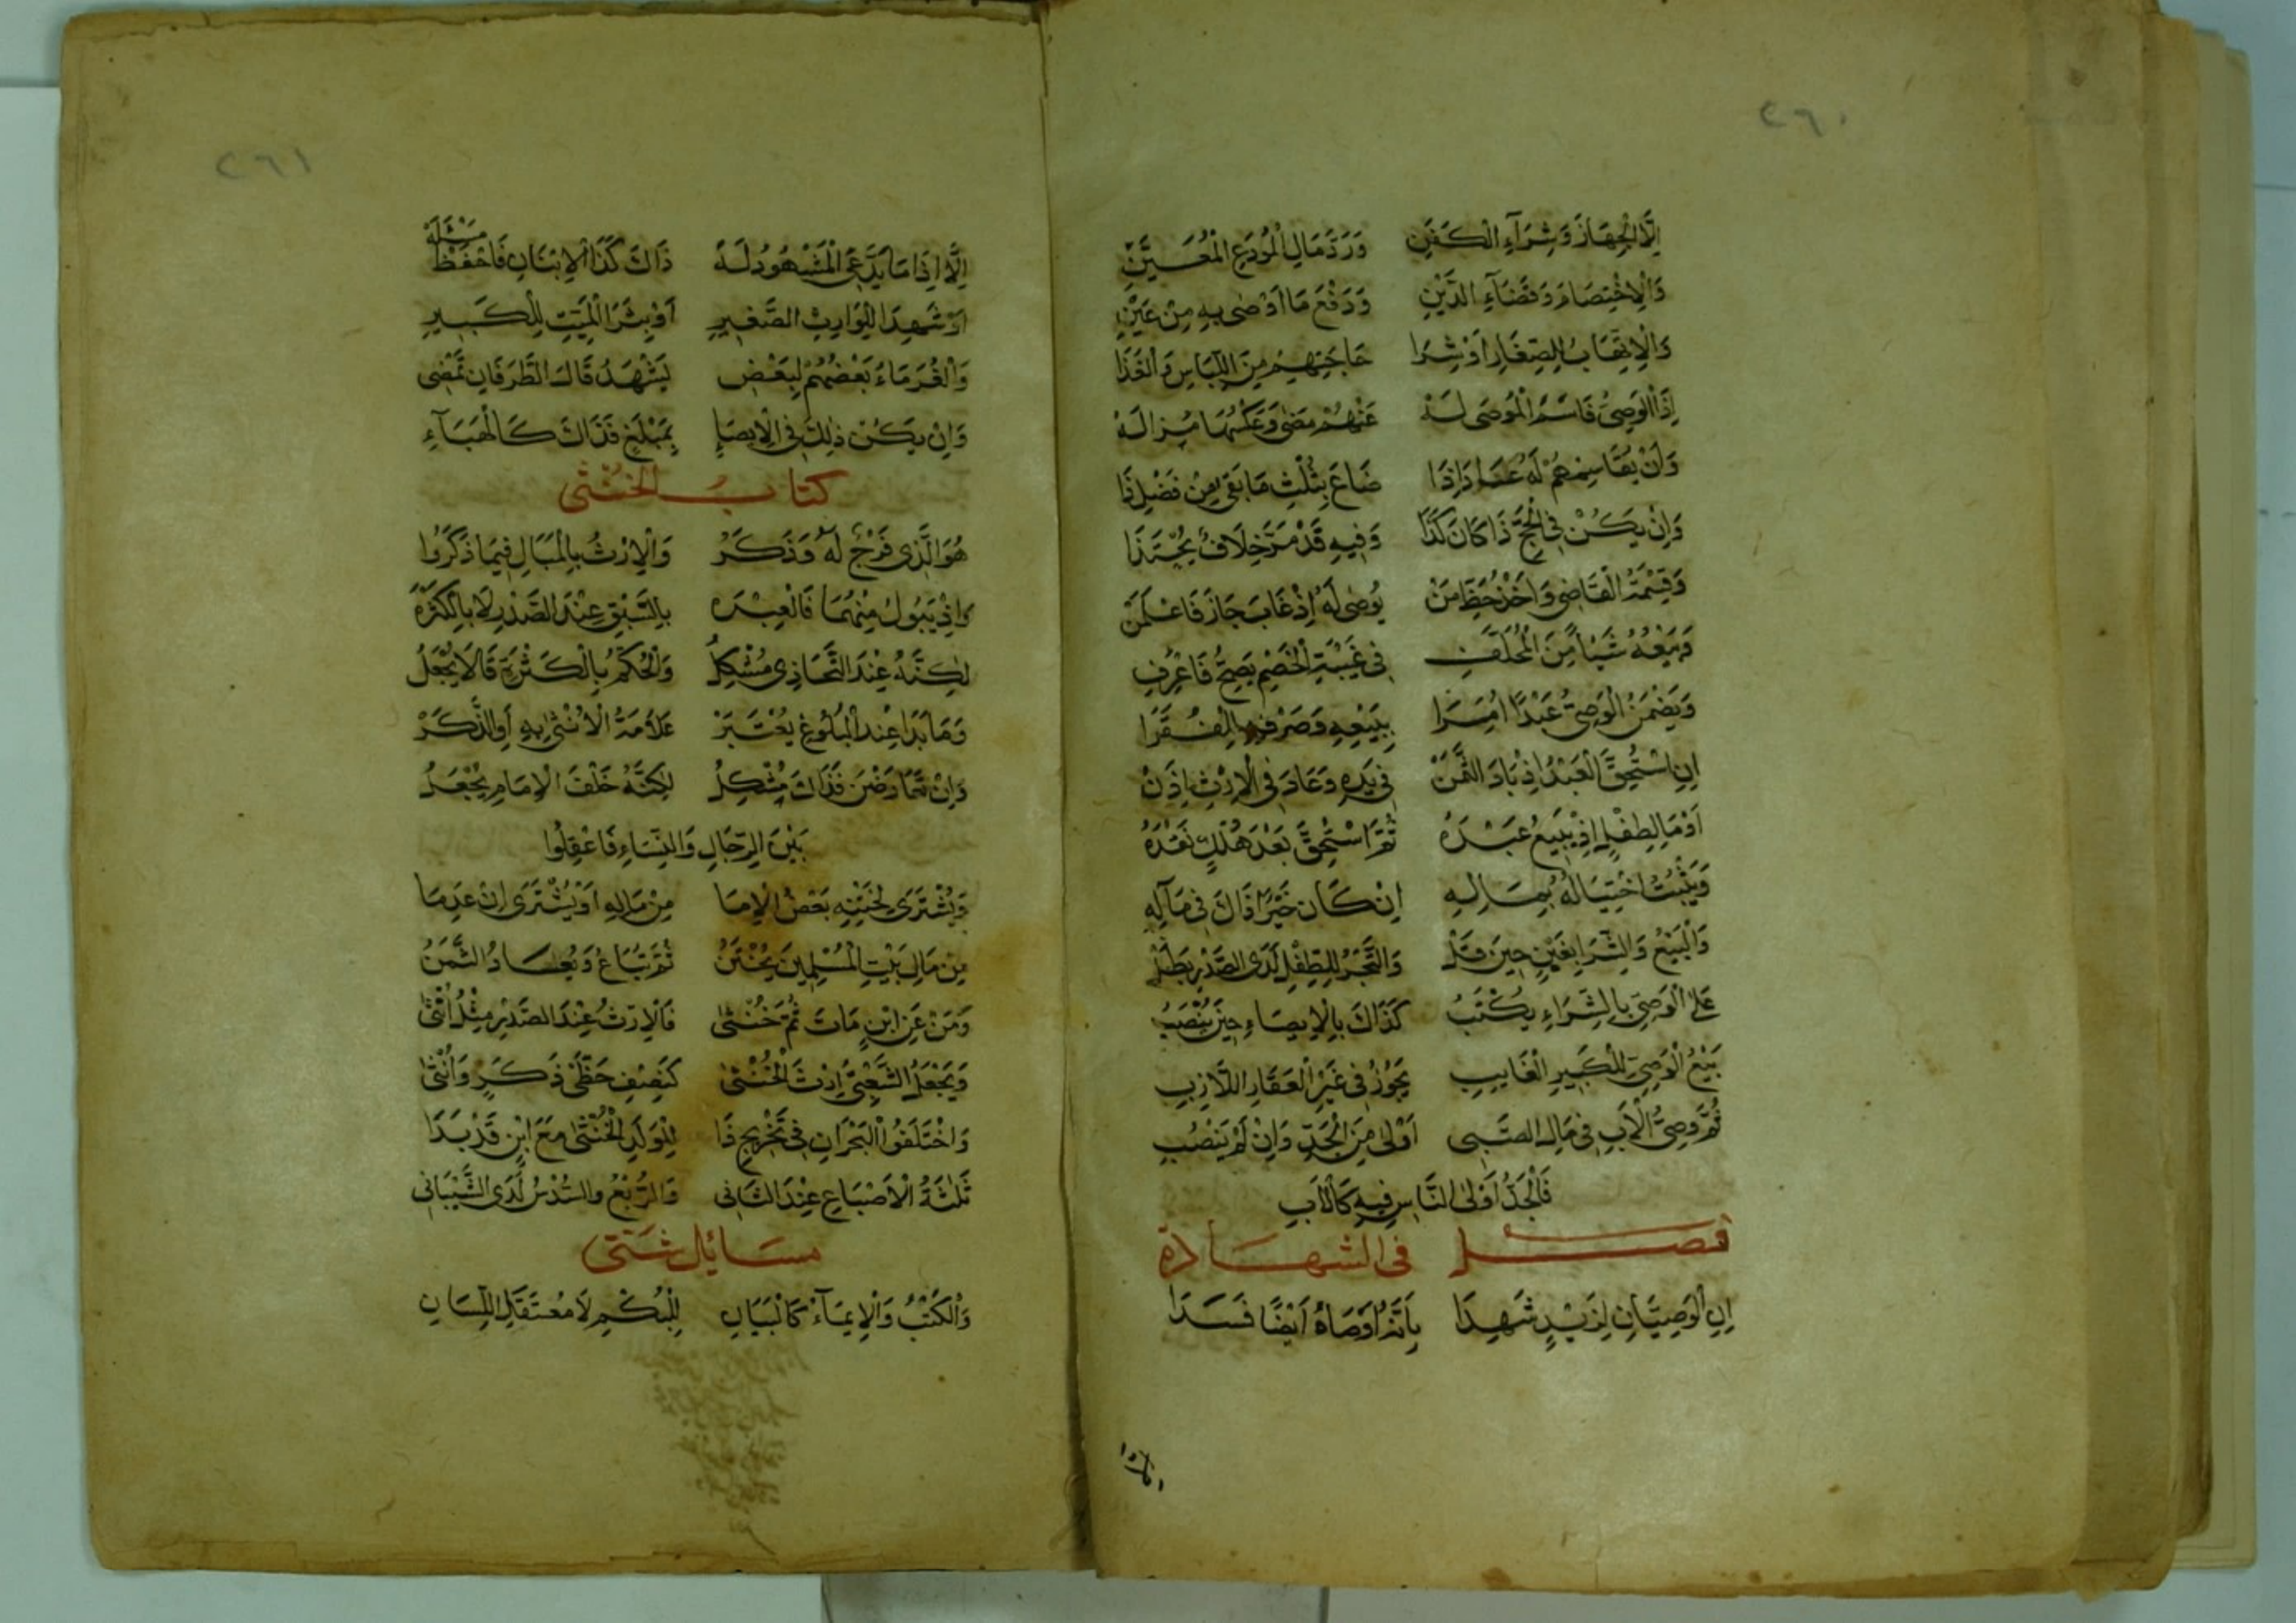 ٢٦٠
إِلَّا الْجِهَازَ وَشِرَآءِ الْكَفَنِ وَرَدَّ مَالِ الْمُودِعِ الْمُعَيَّنِ
وَالْاِخْتِصَامَ وَقَضَآءِ الدَّيْنِ وَدَفْعَ مَا اَوْصٰى بِهِ مِنْ عَيْنِ
وَالْاِتِّهَابُ لِلصِّغَارِ اَوْ شِرَا حَاجَتِهِمْ مِنَ اللِّبَاسِ وَالْغَذَا
إِذَا الْوَصِىُّ قَاسَمَ الْمُوصَى لَهُ عَنْهُمْ مَضٰى وَعَكْسُهَا
وَاِنْ يُقَاسِمْهُمْ لَهُ وَاِذَا ضَاعَ بِثُلْثِ مَا بَقِى مِنْ فَضْلِ ذَا
وَاِنْ يَكُنْ فِى الْحَجِّ ذَا كَانَ كَذَا وَفِيهِ قَدْ مَرَّ خِلَافٌ يُحْتَذَا
وَقِسْمَةُ الْقَاضِى وَاَخْذُ حَظِّ مَنْ يُوصٰى لَهُ اِذْ غَابَ جَازَ فَاعْلَمَنْ
وَبَيْعُهُ شَيْأً مِّنَ الْمُخَلَّفِ فِى غَيْبَةِ الْخَصْمِ يَصِحُّ فَاعْرِفِ
وَيَضْمَنُ الْوَصِىُّ عَبْدًا اُمِرَا بِبَيْعِهِ وَصَرْفِهِ لِلْفُقَرَا
اِنِ اسْتُحِقَّ الْعَبْدُ اِذْ بَادَ الثَّمَنْ فِى يَدِهِ وَعَادَ فِى الْاِرْثِ اِذَنْ
اَوْ مَالِ طِفْلٍ اِذْ يَبِيعُ عَبْدَهُ ثُمَّ اسْتُحِقَّ بَعْدَ هُلْكٍ نَقْدُهُ
وَيَثْبُتُ احْتِيَالُهُ بِمَالِهِ اِنْ كَانَ خَيْرًا ذَاكَ فِى مَآلِهِ
وَالْبَيْعُ وَالشِّرَا بِغَبْنٍ حِينَ قَلْ وَالتَّجْرُ لِلطِّفْلِ لَدَى الصَّدْرِ بَطَلْ
عَلَى الْوَصِىِّ بِالشِّرَاءِ يُكْتَبُ كَذَاكَ بِالْاِيصَاءِ حِينَ يُنْصَبُ
بَيْعُ الْوَصِىِّ لِلْكَبِيرِ الْغَايِبِ يَجُوزُ فِى غَيْرِ الْعَقَارِ اللَّازِبِ
ثُمَّ وَصِىُّ الْاَبِ فِى مَالِ الصَّبِى اَوْلٰى مِنَ الْجَدِّ وَاِنْ لَمْ يَنْصُبِ
فَالْجَدُّ اَوْلَى النَّاسِ فِيهِ كَالْاَبِ
فصل فى الشهادة
اِنِ الْوَصِيَّانِ لِزَيْدٍ شَهِدَا بِاَنَّهُ اَوْصَاهُ اَيْضًا فَسَدَا
٢٦١
اِلَّا اِذَا مَا يَدَّعِى الْمَشْهُودُ لَهُ ذَاكَ كَذَا الْاِبْنَانِ فَاحْفَظْ مَسْئَلَهْ
اَوْ شَهِدَا لِلْوَارِثِ الصَّغِيرِ اَوْ بِشِرَا الْمَيِّتِ لِلْكَبِيرِ
وَالْغُرَمَاءُ بَعْضُهُمْ لِبَعْضٍ يَشْهَدُ قَالَ الطَّرَفَانِ تَمْضِى
وَاِنْ يَكُنْ ذٰلِكَ فِى الْاِيصَاءِ بِمَبْلَغٍ فَذَاكَ كَالْهَبَآءِ
كتاب الخنثى
هُوَ الَّذِى فَرْجٌ لَهُ وَذَكَرُ وَالْاِرْثُ بِالْمَبَالِ فِيمَا ذَكَرُوا
وَاِذْ يَبُولُ مِنْهُمَا فَالْعِبْرَه بِالسَّبْقِ عِنْدَ الصَّدْرِ لَا بِالْكَثْرَهْ
لٰكِنَّهُ عِنْدَ التَّحَاذِى مُشْكِلُ وَالْحُكْمُ بِالْكَثْرَةِ قَالَا يُجْعَلُ
وَمَا بَدَا عِنْدَ الْبُلُوغِ يُعْتَبَرْ عَلَامَةُ الْاُنْثٰى بِهِ اَوِ الذَّكَرْ
وَاِنْ تَعَارَضْنَ فَذَاكَ مُشْكِلُ لٰكِنَّهُ خَلْفَ الْاِمَامِ يُجْعَلُ
بَيْنَ الرِّجَالِ وَالنِّسَاءِ فَاعْقِلُوا
وَيُشْتَرَى لِخَتْنِهِ بَعْضُ الْاِمَا مِنْ مَالِهِ اَوْ يُشْتَرَى اِنْ عَدِمَا
مِنْ مَالِ بَيْتِ الْمُسْلِمِينَ يُخْتَنُ ثُمَّ تُبَاعُ وَيُعَادُ الثَّمَنُ
وَمَنْ عَنِ ابْنٍ مَاتَ ثُمَّ خُنْثٰى فَالْاِرْثُ عِنْدَ الصَّدْرِ مِثْلُ اُنْثٰى
وَيَجْعَلُ الشَّعْبِىُّ اِرْثَ الْخُنْثٰى كَنِصْفِ حَظَّىْ ذَكَرٍ وَاُنْثٰى
وَاخْتَلَفُوا الْبَحْرَانِ فِى تَخْرِيجِ ذَا لِلْوَلَدِ الْخُنْثٰى مَعَ ابْنٍ قَدْ بَدَا
ثَلٰثَةُ الْاَسْبَاعِ عِنْدَ الثَّانِى وَالرُّبْعُ وَالسُّدْسُ لَدَى الشَّيْبَانِى
مسائل شتى
وَالْكَتْبُ وَالْاِيمَآءُ كَالْبَيَانِ لِلْبُكْمِ لَا مُعْتَقَلِ اللِّسَانِ